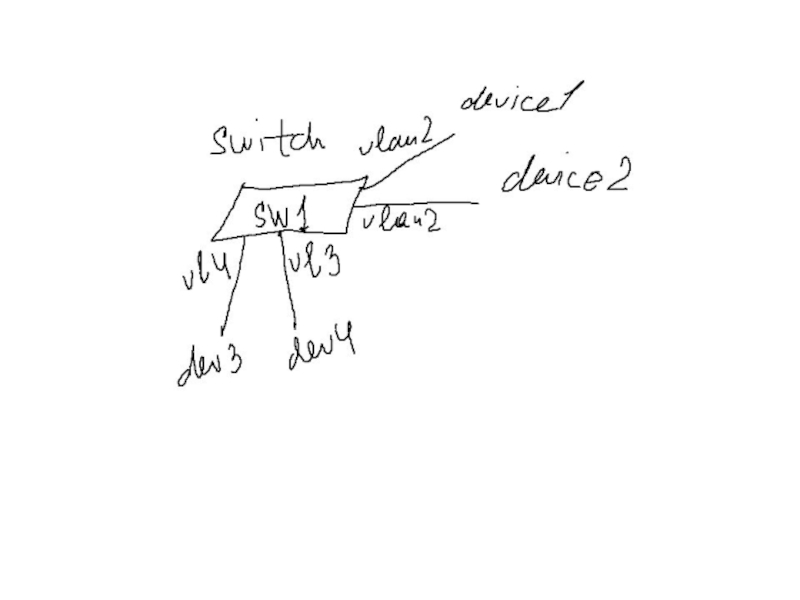 device1
switch vlan2
device2
SW1
vlan2
vl4 vl3
dev3 dev4